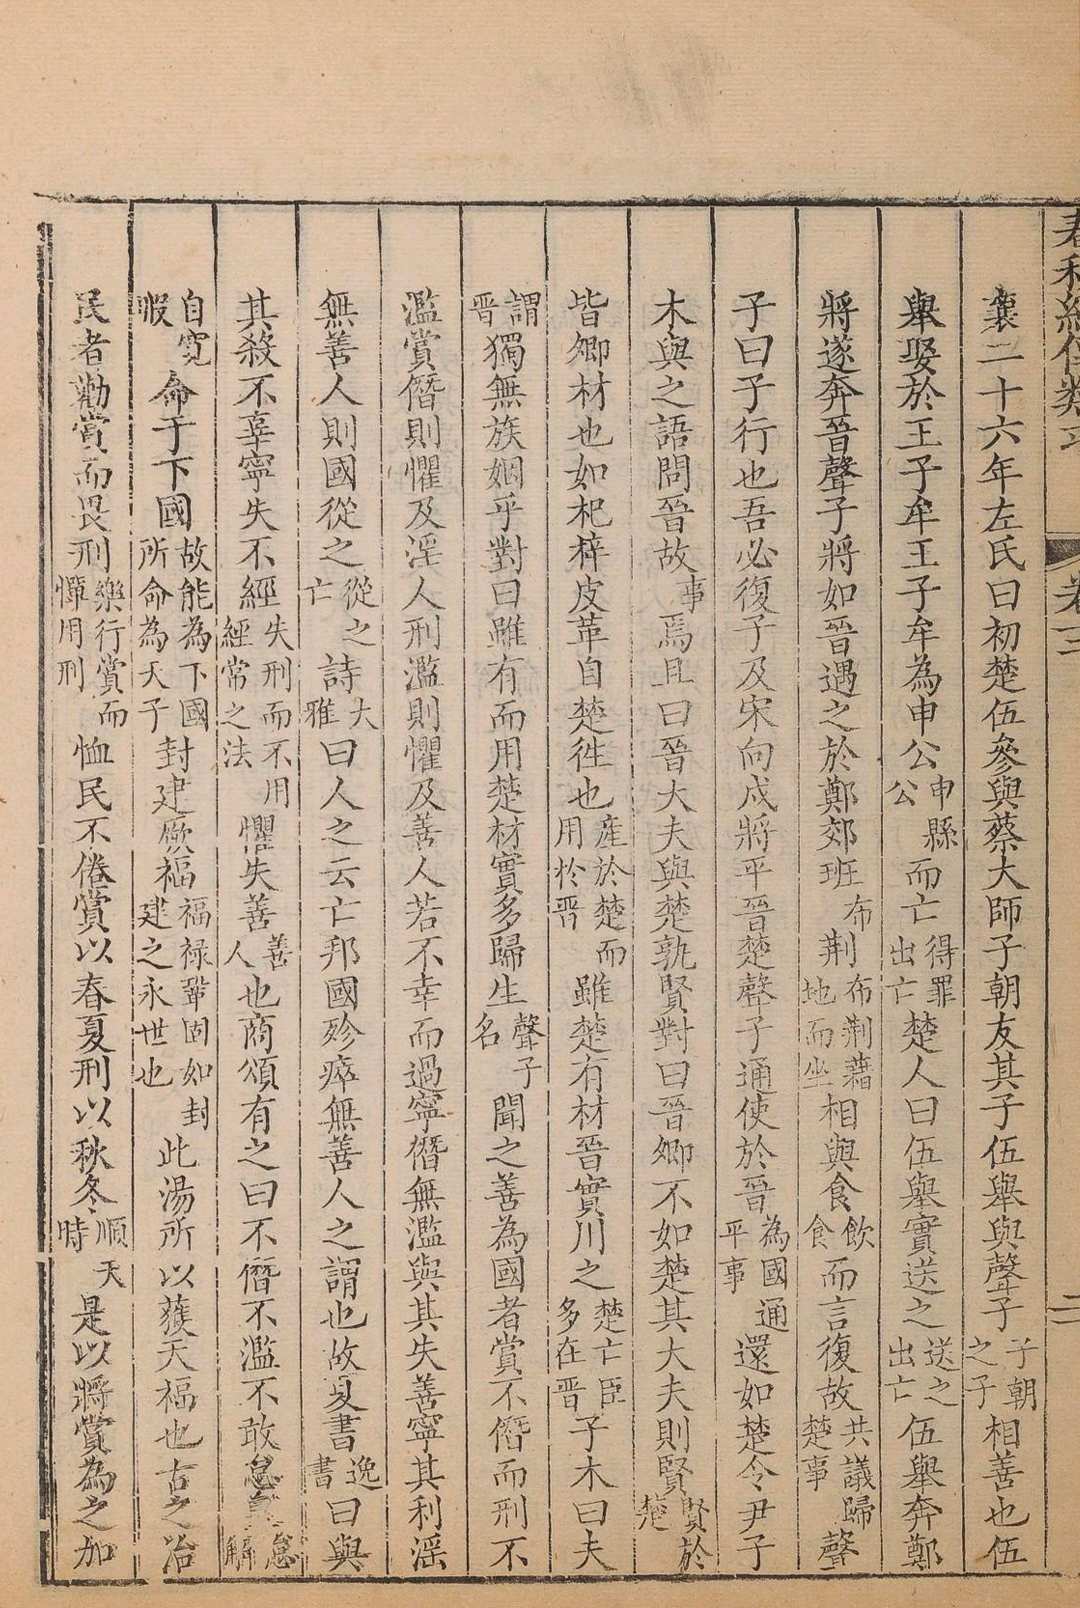 春秋經傳類求 卷三 二
襄二十六年左氏曰初楚伍參與蔡大師子朝友其子伍舉與聲子子朝之子相善也伍
舉娶於王子牟王子牟為申公申縣公而亡得罪出亡楚人曰伍舉實送之送之出亡伍舉奔鄭
將遂奔晉聲子將如晉遇之於鄭郊班布荆布荆藉地而坐相與食飲食而言復故共議歸楚事聲
子曰子行也吾必復子及宋向戌將平晉楚聲子通使於晉為國通平事還如楚令尹子
木與之語問晉故事焉且曰晉大夫與楚孰賢對曰晉卿不如楚其大夫則賢賢於楚
皆卿材也如杞梓皮革自楚徃也產於楚而用於晉雖楚有材晉實用之楚亡臣多在晉子木曰夫
謂晉獨無族姻乎對曰雖有而用楚材實多歸生聲子名聞之善為國者賞不僭而刑不
濫賞僭則懼及淫人刑濫則懼及善人若不幸而過寧僭無濫與其失善寧其利淫
無善人則國從之從之亡詩大雅曰人之云亡邦國殄瘁無善人之謂也故夏書逸書曰與
其殺不辜寧失不經失刑而不用經常之法懼失善善人也商頌有之曰不僭不濫不敢怠皇怠解
自寛暇命于下國故能為下國所命為天子封建厥福福祿鞏固如封建之永世也此湯所以獲天福也古之治
民者勸賞而畏刑樂行賞而憚用刑恤民不倦賞以春夏刑以秋冬順天時是以將賞為之加